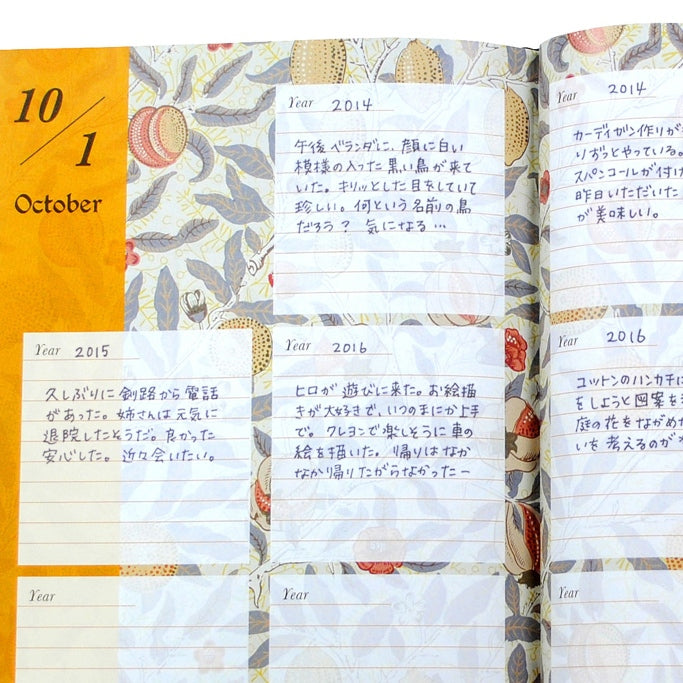 10/1
October
Year 2014
午後 ベランダに、顔に白い
模様の入った黒い鳥が来て
いた。キリッとした目をしていて
珍しい。何という名前の鳥
だろう？ 気になる…
Year 2015
久しぶりに釧路から電話
があった。姉さんは元気に
退院したそうだ。良かった
安心した。近々会いたい。
Year 2016
ヒロが遊びに来た。お絵描
きが大好きで、いつのまにか上手
で。クレヨンで楽しそうに車の
絵を描いた。帰りはなか
なか帰りたがらなかったー
Year
Year
Year 2014
カーディガン作りが
りずっとやっている。
スパンコールが付け
昨日いただいた
が美味しい。
Year 2016
コットンのハンカチに
をしようと図案を
庭の花をながめな
いを考えるのが
Year